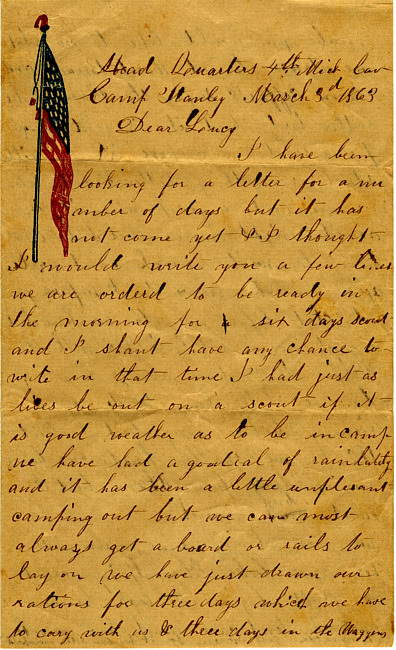 Head Quarters 4th Mich Cav
Camp Stanley March 3d 1863
Dear Loucy
I have been
looking for a letter for a nu
mber of days but it has
not come yet & I thought
I would write you a few lines
we are orderd to be ready in
the morning for a six days scout
and I shant have any chance to
write in that time I had just as
lives be out on a scout if it
is good weather as to be in camp
we have had a good eal of rain lately
and it has been a little unplesant
camping out but we can most
always get a board or rails to
lay on we have just drawn our
rations for three days which we have
to cary with us & three days in the Waggons